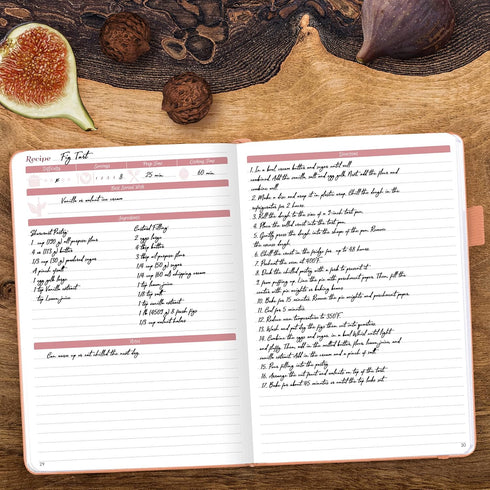 Recipe Fig Tart
Difficulty Servings Prep Time Cooking Time
8 25 min. 60 min.
Best Served With
Vanilla or walnut ice cream
Ingredients
Shortcrust Pastry:
1 cup (120 g) all purpose flour
4 oz (113 g) butter
1/3 cup (30 g) powdered sugar
A pinch salt
1 egg yolk
1 tsp vanilla extract
1 tsp lemon juice
Custard Filling:
2 eggs
4 tbsp butter
3 tbsp all purpose flour
1/4 cup (50 g) sugar
1/4 cup (60 ml) whipping cream
1 tsp lemon juice
1/8 tsp salt
1 tsp vanilla extract
1 lb (450 g) fresh figs
1/3 cup walnut halves
Notes
Can warm up or eat chilled the next day.
29
Directions
1. In a bowl, cream butter and sugar until well
combined. Add the vanilla, salt and egg yolk. Next, add the flour and
combine well.
2. Make a disc and wrap it in plastic wrap. Chill the dough in the
refrigerator for 2 hours.
3. Roll the dough to the size of a 9-inch tart pan.
4. Place the rolled crust into the tart pan.
5. Gently press the dough into the shape of the pan. Remove
the excess dough.
6. Chill the crust in the fridge for up to 48 hours.
7. Preheat the oven at 400°F.
8. Dock the chilled pastry with a fork to prevent it
from puffing up. Line the pie with parchment paper. Then, fill the
center with pie weights or baking beans.
10. Bake for 15 minutes. Remove the pie weights and parchment paper.
11. Cool for 5 minutes.
12. Reduce oven temperature to 350°F.
13. Wash and pat dry the figs then cut into quarters.
14. Combine the eggs and sugar in a bowl. Whisk until light
and fluffy. Then, add in the melted butter, flour, lemon juice, and
vanilla extract. Add in the cream and a pinch of salt.
15. Pour filling into the pastry.
16. Arrange the cut fruit and walnuts on top of the tart.
17. Bake for about 45 minutes or until the top looks set.
30